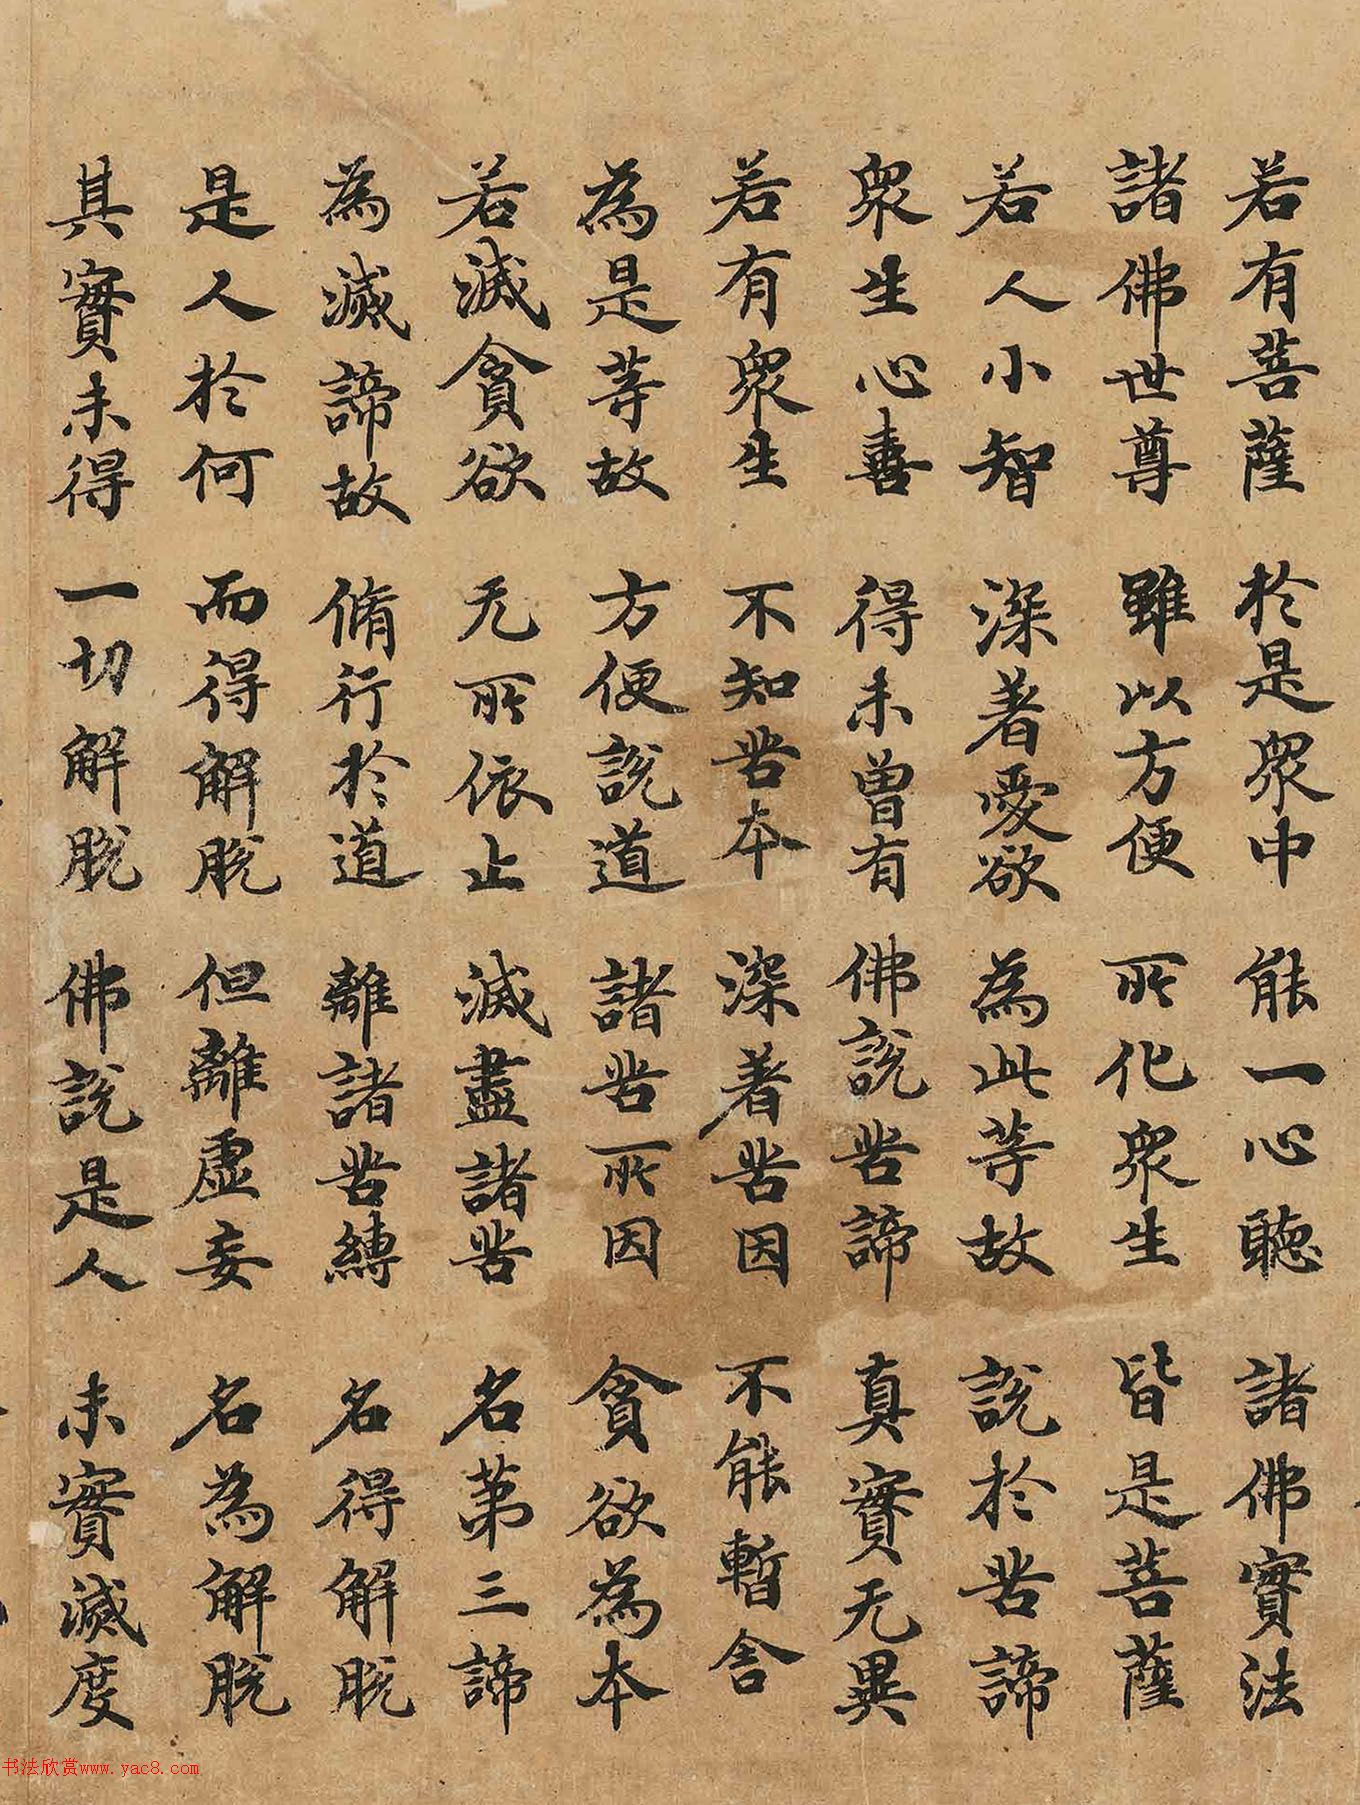 若有菩薩 於是眾中 能一心聽 諸佛實法
諸佛世尊 雖以方便 所化眾生 皆是菩薩
若人小智 深著愛欲 為此等故 說於苦諦
眾生心喜 得未曾有 佛說苦諦 真實无異
若有眾生 不知苦本 深著苦因 不能暫舍
為是等故 方便說道 諸苦所因 貪欲為本
若滅貪欲 无所依止 滅盡諸苦 名第三諦
為滅諦故 脩行於道 離諸苦縛 名得解脫
是人於何 而得解脫 但離虛妄 名為解脫
其實未得 一切解脫 佛說是人 未實滅度
书法欣赏www.yac8.com